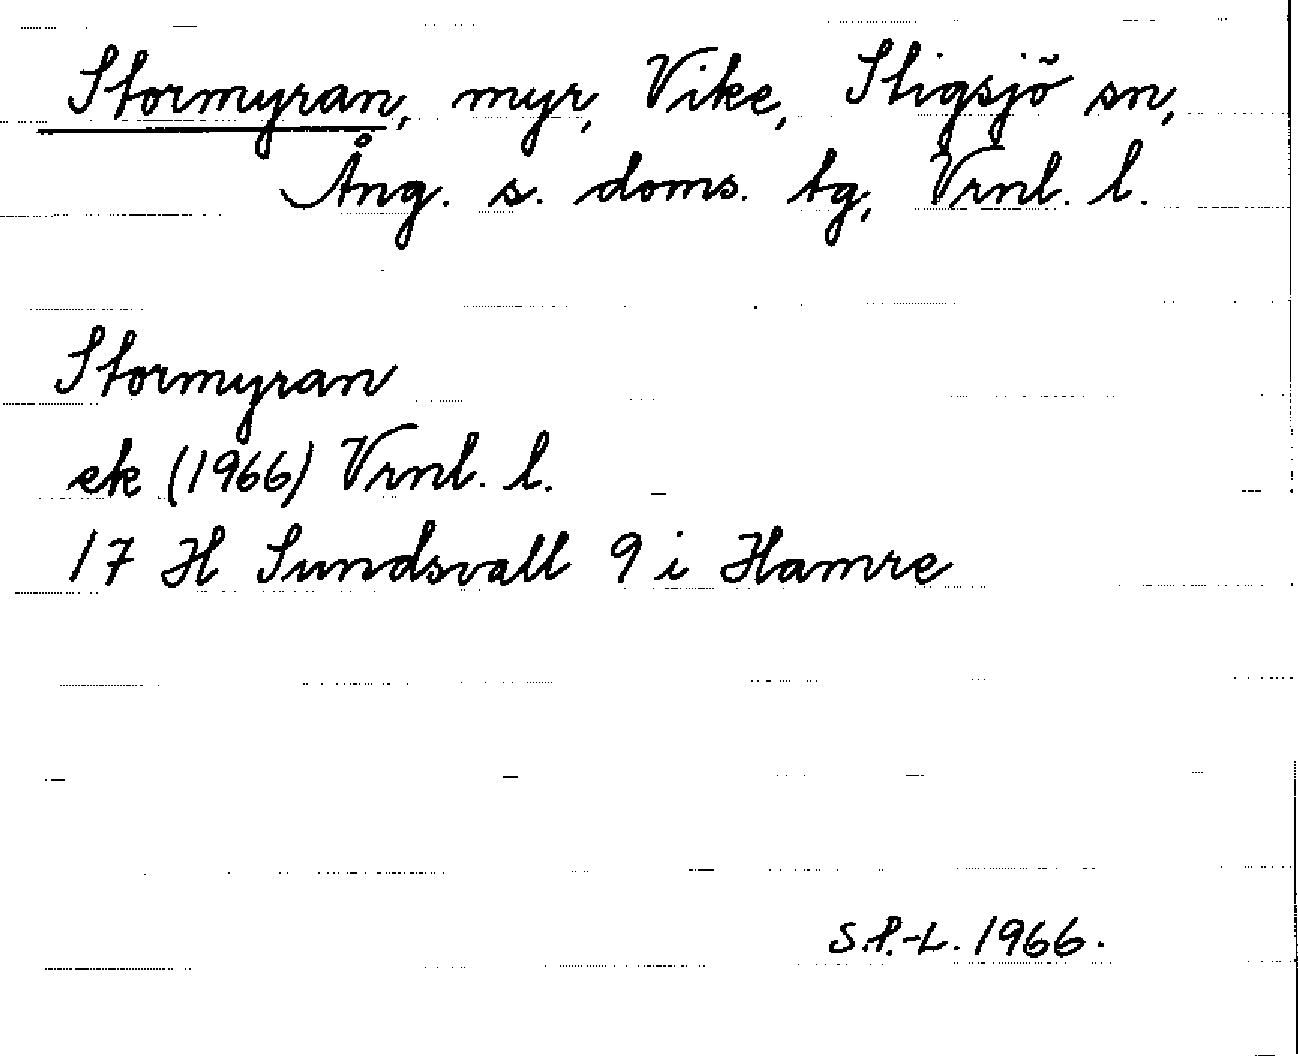 Stormyran, myr, Vike, Stigsjö sn,
Ång. s. doms. tg, Vrnl. l.
Stormyran
ek (1966) Vrnl. l.
17 H Sundsvall 9 i Hamre
S.P.-L. 1966.